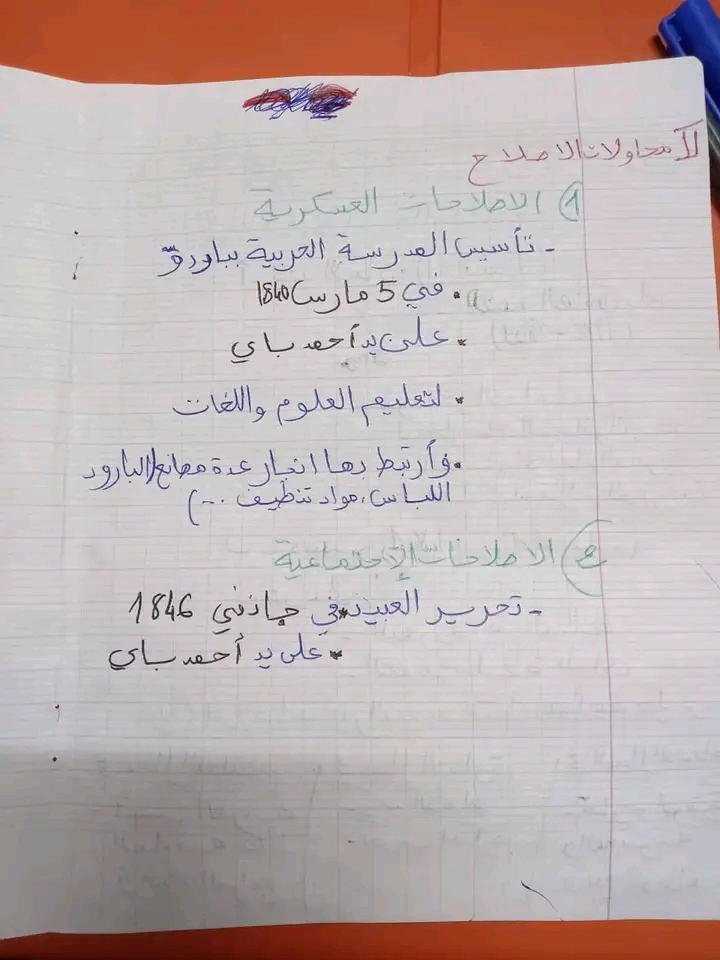 II محاولات الاصلاح
1) الاصلاحات العسكرية
- تأسيس المدرسة الحربية بباردو
• في 5 مارس 1840
• على يد أحمد باي
• لتعليم العلوم واللغات
• وأرتبط بها انجاز عدة مصانع (البارود
اللباس، مواد تنظيف ...)
2) الاصلاحات الإجتماعية
- تحرير العبيد في جانفي 1846
• على يد أحمد باي